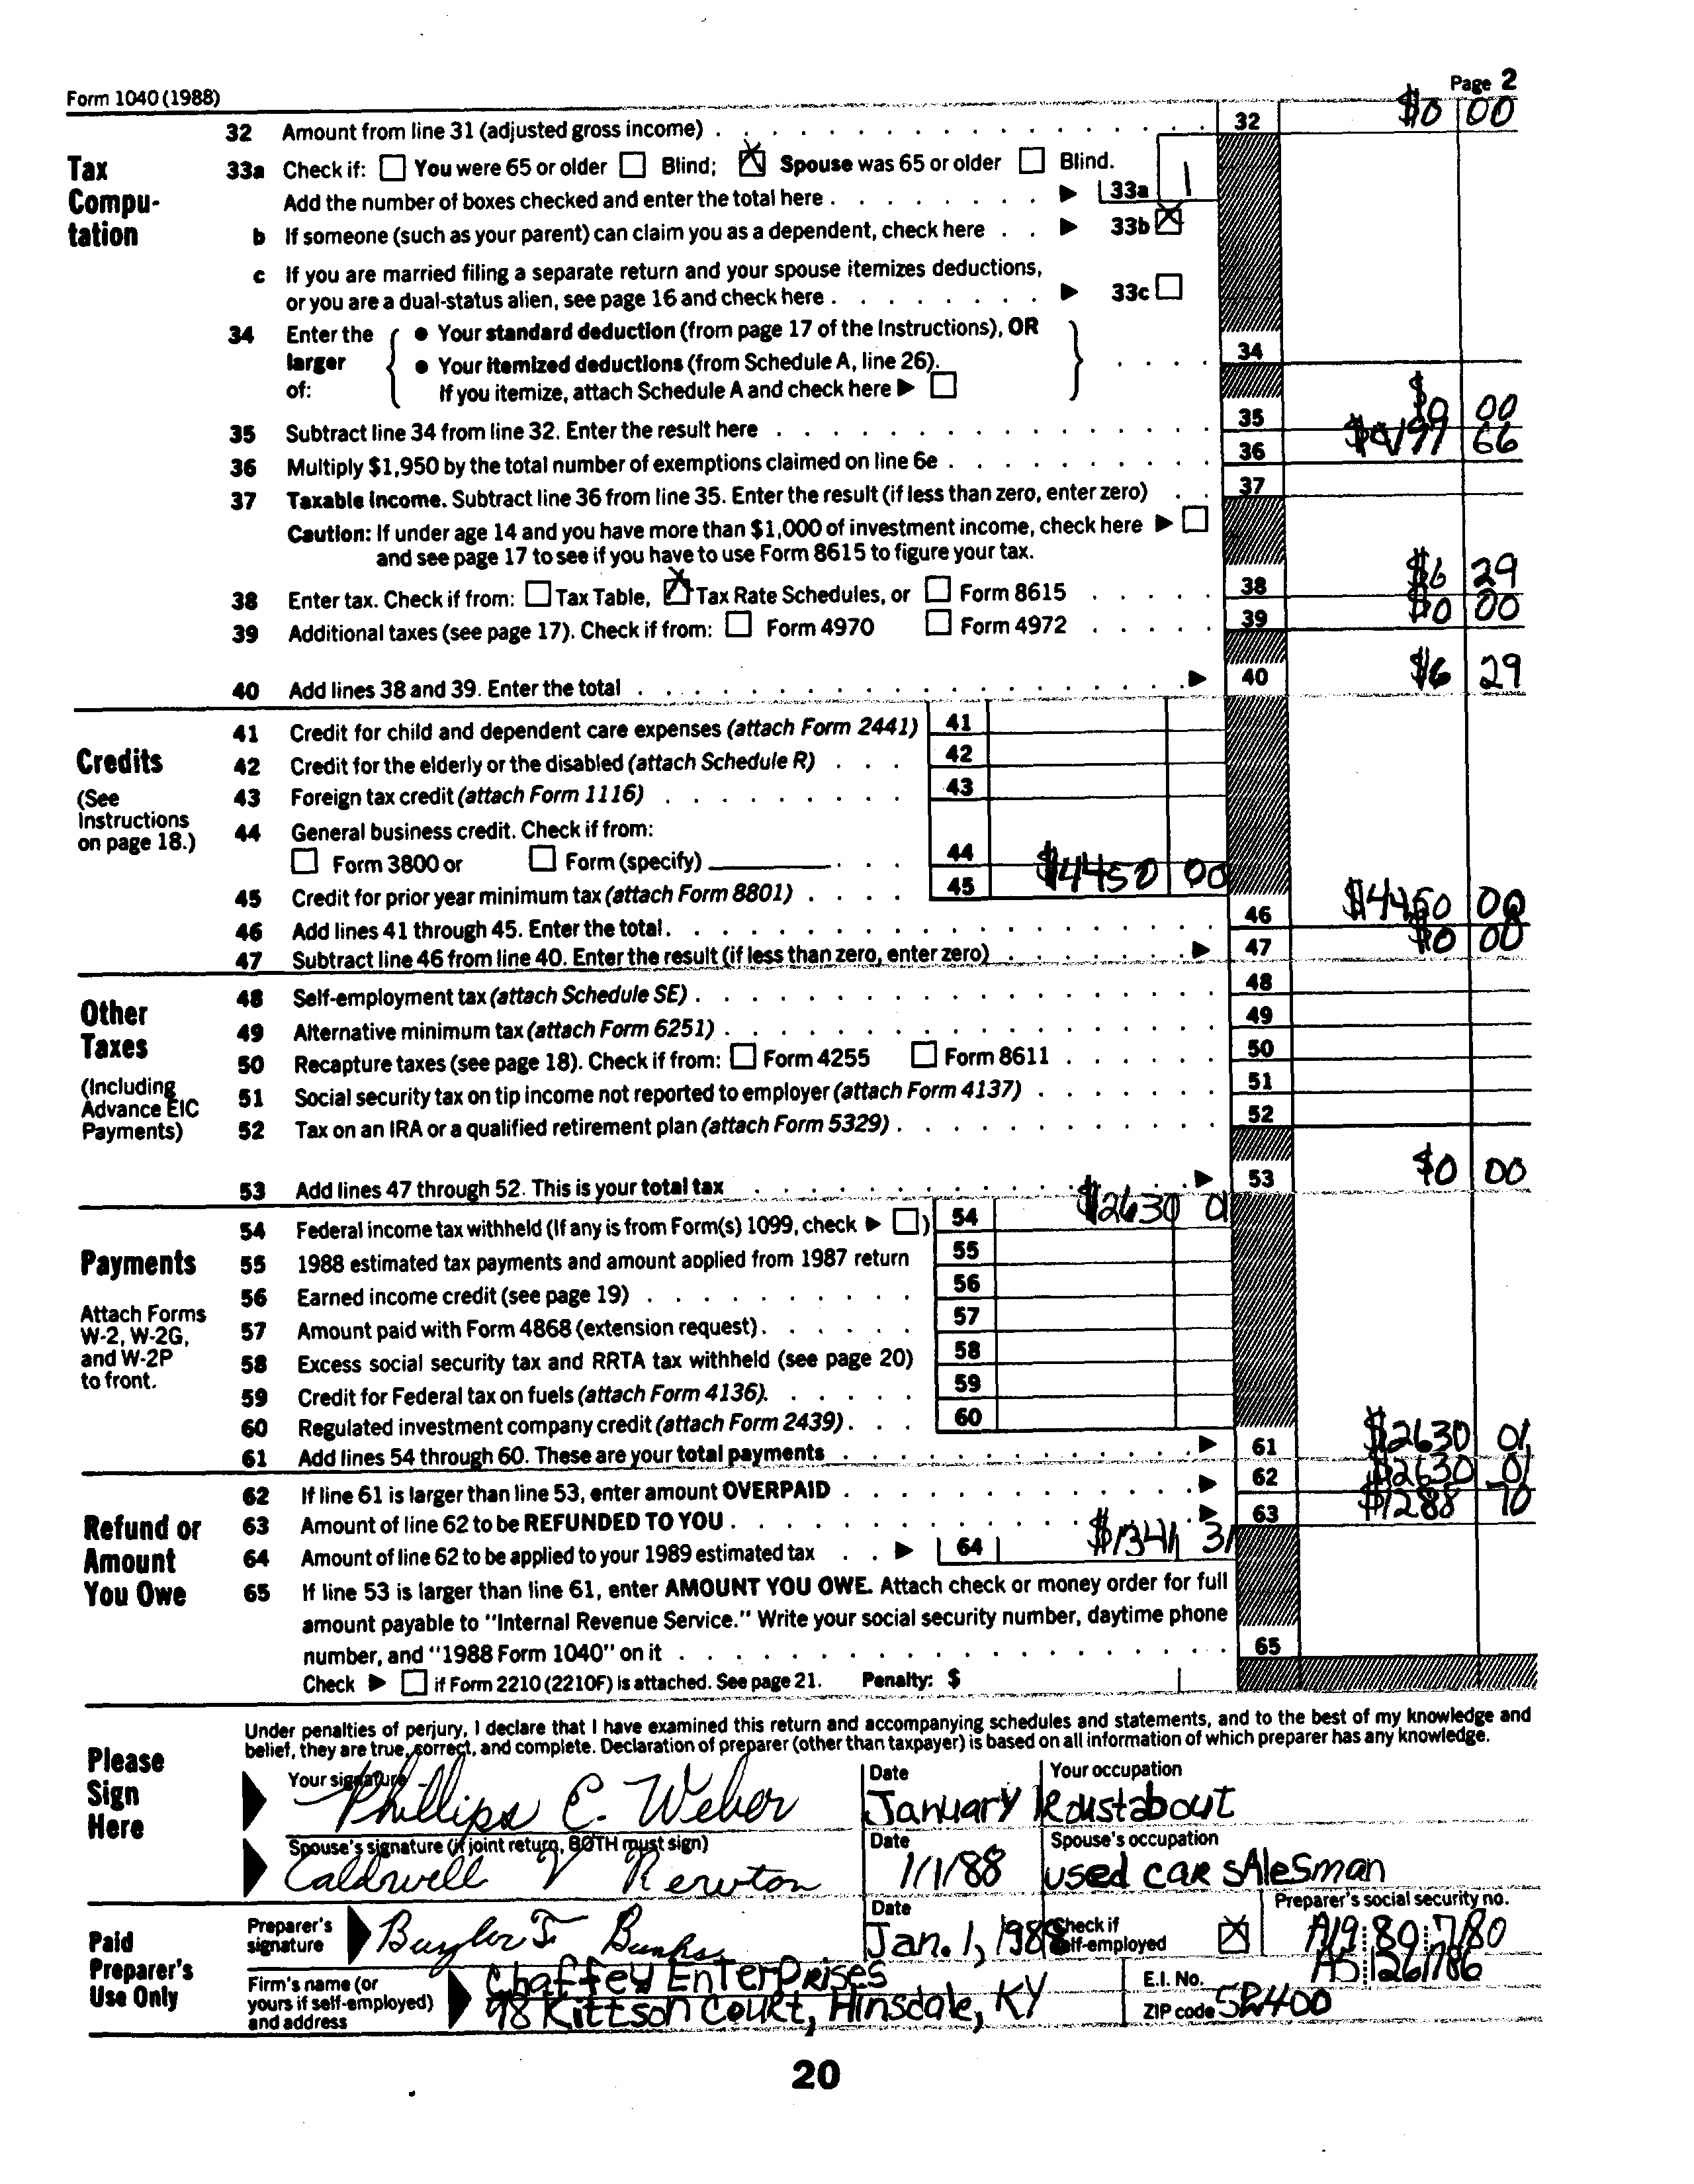 Form 1040 (1988) Page 2
Tax Compu-tation
32 Amount from line 31 (adjusted gross income) 32 $0 00
33a Check if: You were 65 or older Blind; Spouse was 65 or older Blind.
Add the number of boxes checked and enter the total here 33a 1
b If someone (such as your parent) can claim you as a dependent, check here 33b
c If you are married filing a separate return and your spouse itemizes deductions,
or you are a dual-status alien, see page 16 and check here 33c
34 Enter the larger of:
• Your standard deduction (from page 17 of the Instructions), OR
• Your itemized deductions (from Schedule A, line 26).
If you itemize, attach Schedule A and check here
34
35 Subtract line 34 from line 32. Enter the result here 35 $0 00
36 Multiply $1,950 by the total number of exemptions claimed on line 6e 36 66
37 Taxable income. Subtract line 36 from line 35. Enter the result (if less than zero, enter zero) 37
Caution: If under age 14 and you have more than $1,000 of investment income, check here
and see page 17 to see if you have to use Form 8615 to figure your tax.
38 Enter tax. Check if from: Tax Table, Tax Rate Schedules, or Form 8615 38 $6 29
39 Additional taxes (see page 17). Check if from: Form 4970 Form 4972 39 $0 00
40 Add lines 38 and 39. Enter the total 40 $6 29
Credits
(See Instructions on page 18.)
41 Credit for child and dependent care expenses (attach Form 2441) 41
42 Credit for the elderly or the disabled (attach Schedule R) 42
43 Foreign tax credit (attach Form 1116) 43
44 General business credit. Check if from:
Form 3800 or Form (specify) 44
45 Credit for prior year minimum tax (attach Form 8801) 45 $4450 00
46 Add lines 41 through 45. Enter the total 46 $4450 00
47 Subtract line 46 from line 40. Enter the result (if less than zero, enter zero) 47 $0 00
Other Taxes
(Including Advance EIC Payments)
48 Self-employment tax (attach Schedule SE) 48
49 Alternative minimum tax (attach Form 6251) 49
50 Recapture taxes (see page 18). Check if from: Form 4255 Form 8611 50
51 Social security tax on tip income not reported to employer (attach Form 4137) 51
52 Tax on an IRA or a qualified retirement plan (attach Form 5329) 52
53 Add lines 47 through 52. This is your total tax 53 $0 00
Payments
Attach Forms W-2, W-2G, and W-2P to front.
54 Federal income tax withheld (If any is from Form(s) 1099, check ) 54 $2630 01
55 1988 estimated tax payments and amount applied from 1987 return 55
56 Earned income credit (see page 19) 56
57 Amount paid with Form 4868 (extension request) 57
58 Excess social security tax and RRTA tax withheld (see page 20) 58
59 Credit for Federal tax on fuels (attach Form 4136) 59
60 Regulated investment company credit (attach Form 2439) 60
61 Add lines 54 through 60. These are your total payments 61 $2630 01
Refund or Amount You Owe
62 If line 61 is larger than line 53, enter amount OVERPAID 62 $2630 01
63 Amount of line 62 to be REFUNDED TO YOU 63 $1288 70
64 Amount of line 62 to be applied to your 1989 estimated tax 64 $1341 31
65 If line 53 is larger than line 61, enter AMOUNT YOU OWE. Attach check or money order for full
amount payable to "Internal Revenue Service." Write your social security number, daytime phone
number, and "1988 Form 1040" on it 65
Check if Form 2210 (2210F) is attached. See page 21. Penalty: $
Please Sign Here
Under penalties of perjury, I declare that I have examined this return and accompanying schedules and statements, and to the best of my knowledge and
belief, they are true, correct, and complete. Declaration of preparer (other than taxpayer) is based on all information of which preparer has any knowledge.
Your signature Phillips C. Weber Date January Your occupation Roustabout
Spouse's signature (if joint return, BOTH must sign) Caldwell V Newton Date 1/1/88 Spouse's occupation used car salesman
Paid Preparer's Use Only
Preparer's signature Date Jan. 1, 1988 Check if self-employed Preparer's social security no.
Firm's name (or yours if self-employed) and address Chaffey Enterprises E.I. No.
98 Kittson Court, Hinsdale, KY ZIP code
20